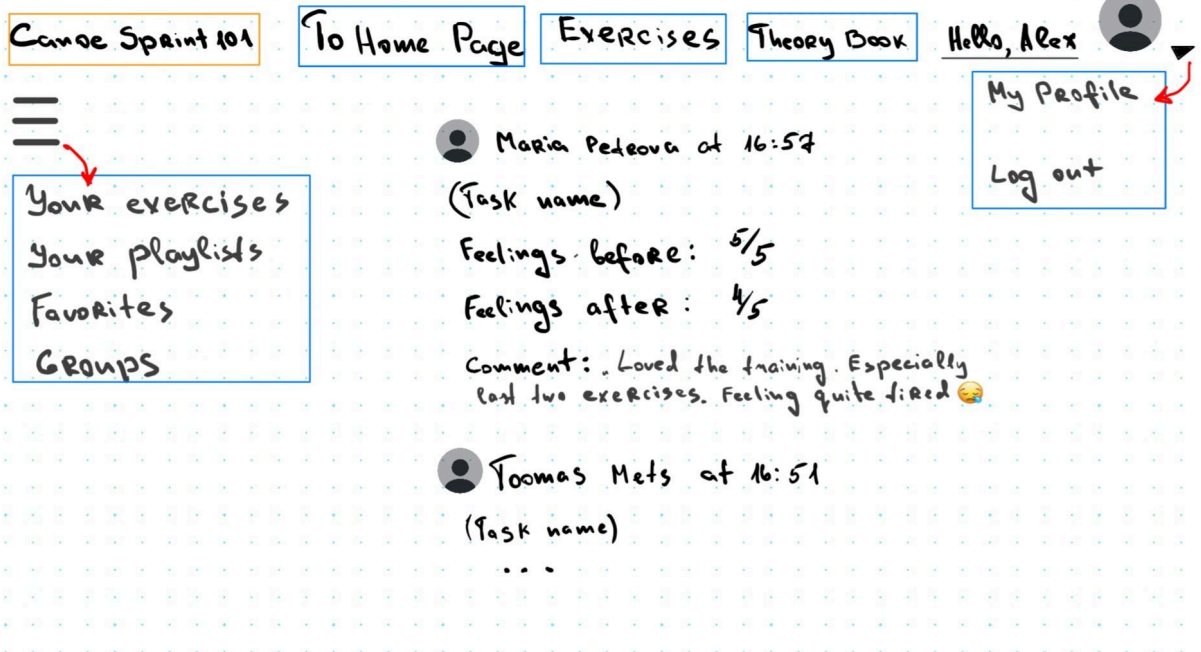 Canoe Sprint 101
To Home Page
Exercises
Theory Book
Hello, Alex
My Profile
Log out
Your exercises
Your playlists
Favorites
Groups
Maria Petrova at 16:57
(Task name)
Feelings before: 5/5
Feelings after: 4/5
Comment: Loved the training. Especially
last two exercises. Feeling quite tired 😪
Toomas Mets at 16:51
(Task name)
...